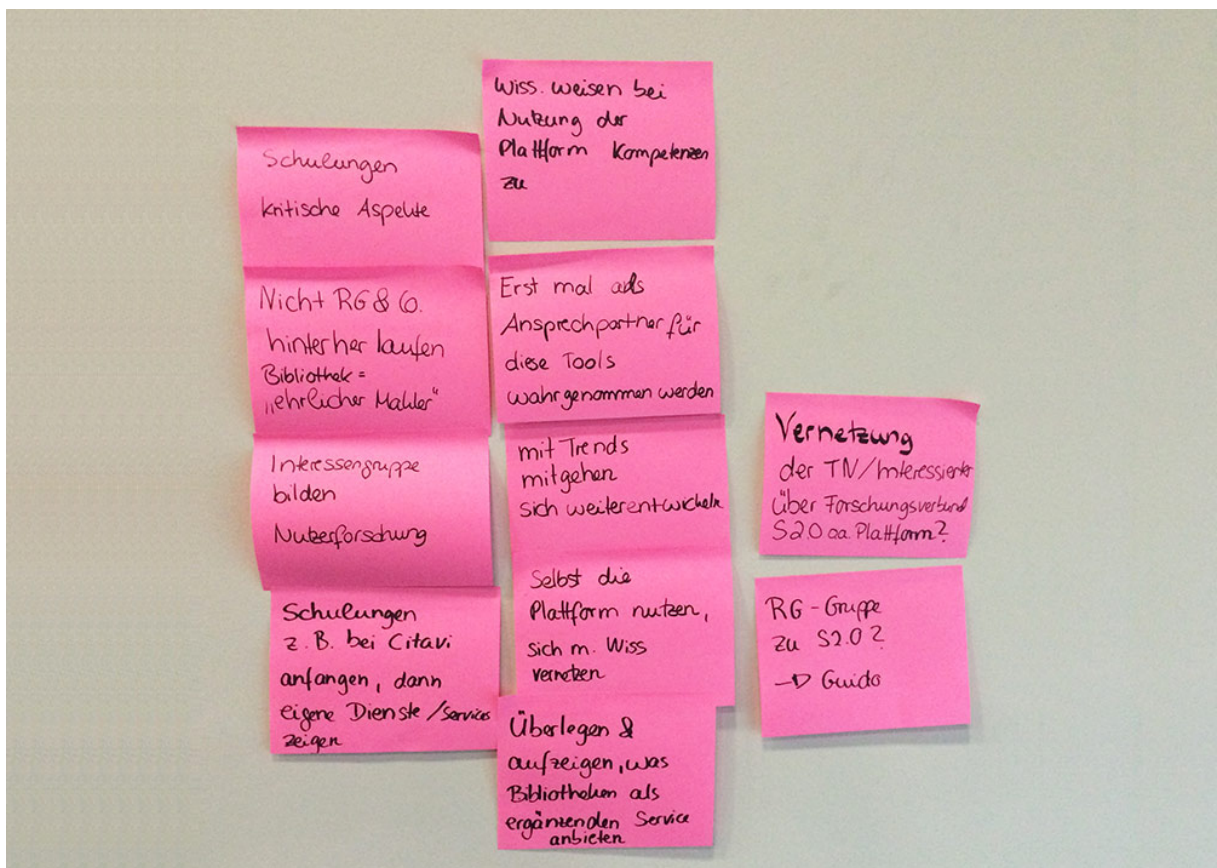 Schulungen
kritische Aspekte
Nicht RG & Co.
hinterher laufen
Bibliothek =
„ehrlicher Makler"
Interessengruppe
bilden
Nutzerforschung
Schulungen
z. B. bei Citavi
anfangen, dann
eigene Dienste/Services
zeigen
Wiss. weisen bei
Nutzung der
Plattform Kompetenzen
zu
Erst mal als
Ansprechpartner für
diese Tools
wahrgenommen werden
mit Trends
mitgehen
sich weiterentwickeln
Selbst die
Plattform nutzen,
sich m. Wiss
vernetzen
Überlegen &
aufzeigen, was
Bibliotheken als
ergänzenden Service
anbieten
Vernetzung
der TN/Interessierter
über Forschungsverbund
S2.0 oa. Plattform?
RG-Gruppe
zu S2.0?
→ Guido